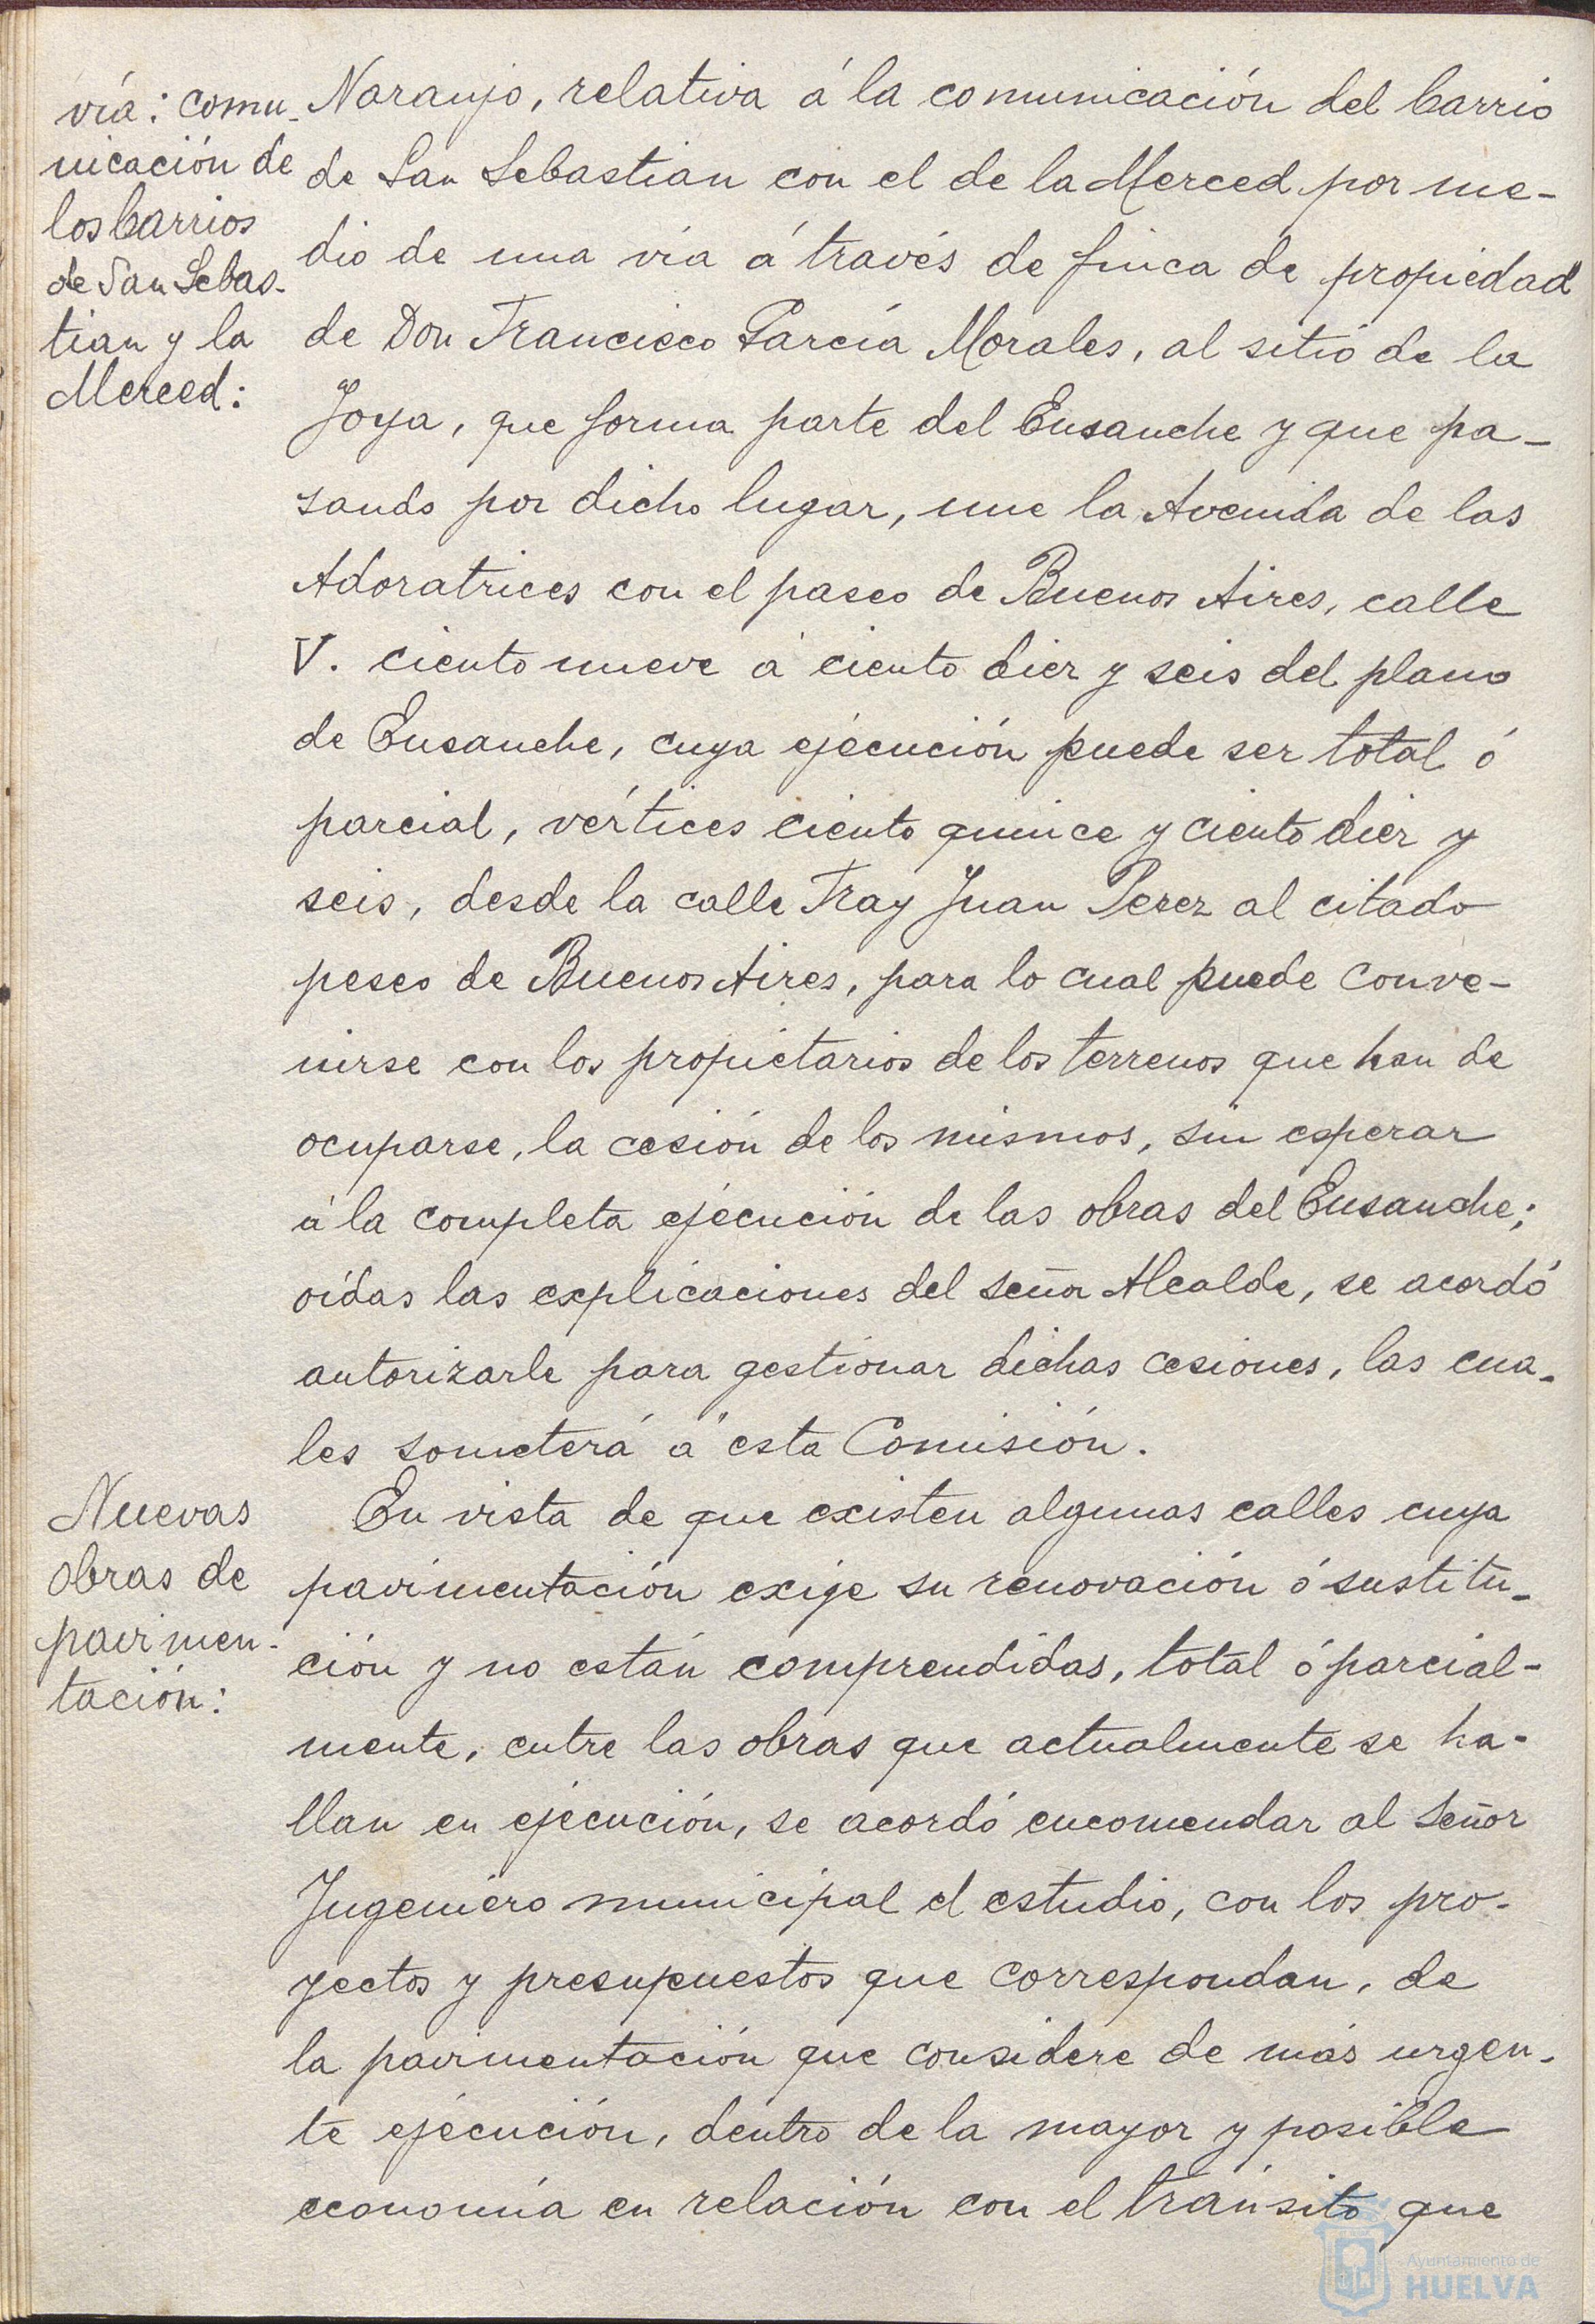 vía: comu-
nicación de
los barrios
de San Sebas-
tian y la
Merced:
Naranjo, relativa á la comunicación del barrio
de San Sebastian con el de la Merced por me-
dio de una vía á través de finca de propiedad
de Don Francisco García Morales, al sitio de la
Joya, que forma parte del Ensanche y que pa-
sando por dicho lugar, une la Avenida de las
Adoratrices con el paseo de Buenos Aires, calle
V. ciento nueve á ciento diez y seis del plano
de Ensanche, cuya ejécución puede ser total ó
parcial, vértices ciento quince y ciento diez y
seis, desde la calle Fray Juan Perez al citado
peseo de Buenos Aires, para lo cual puede conve-
nirse con los propietarios de los terrenos que han de
ocuparse, la cesión de los mismos, sin esperar
á la completa ejécución de las obras del Ensanche;
oídas las explicaciones del señor Alcalde, se acordó
autorizarle para gestionar dichas cesiones, las cua-
les someterá á esta Comisión.
Nuevas
obras de
pavimen-
tación:
En vista de que existen algunas calles cuya
pavimentación exije su renovación ó sustitu-
ción y no están comprendidas, total ó parcial-
mente, entre las obras que actualmente se ha-
llan en ejécución, se acordó encomendar al Señor
Ingeniero municipal el estudio, con los pro-
yectos y presupuestos que correspondan, de
la pavimentación que considere de más urgen-
te ejécución, dentro de la mayor y posible
economía en relación con el tránsito que
Ayuntamiento de
HUELVA